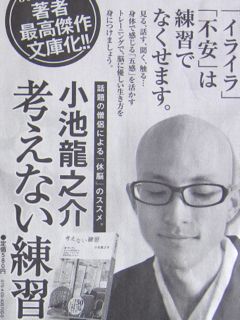 著者
最高傑作
文庫化!!
「イライラ」
「不安」は
練習で
なくせます。
見る、話す、聞く、触る…
身体で感じる「五感」を活かす
トレーニングで、脳に優しい生き方を
身につけましょう。
話題の僧侶による「休脳」のススメ。
小池龍之介
考えない練習
考えない練習
●定価580円